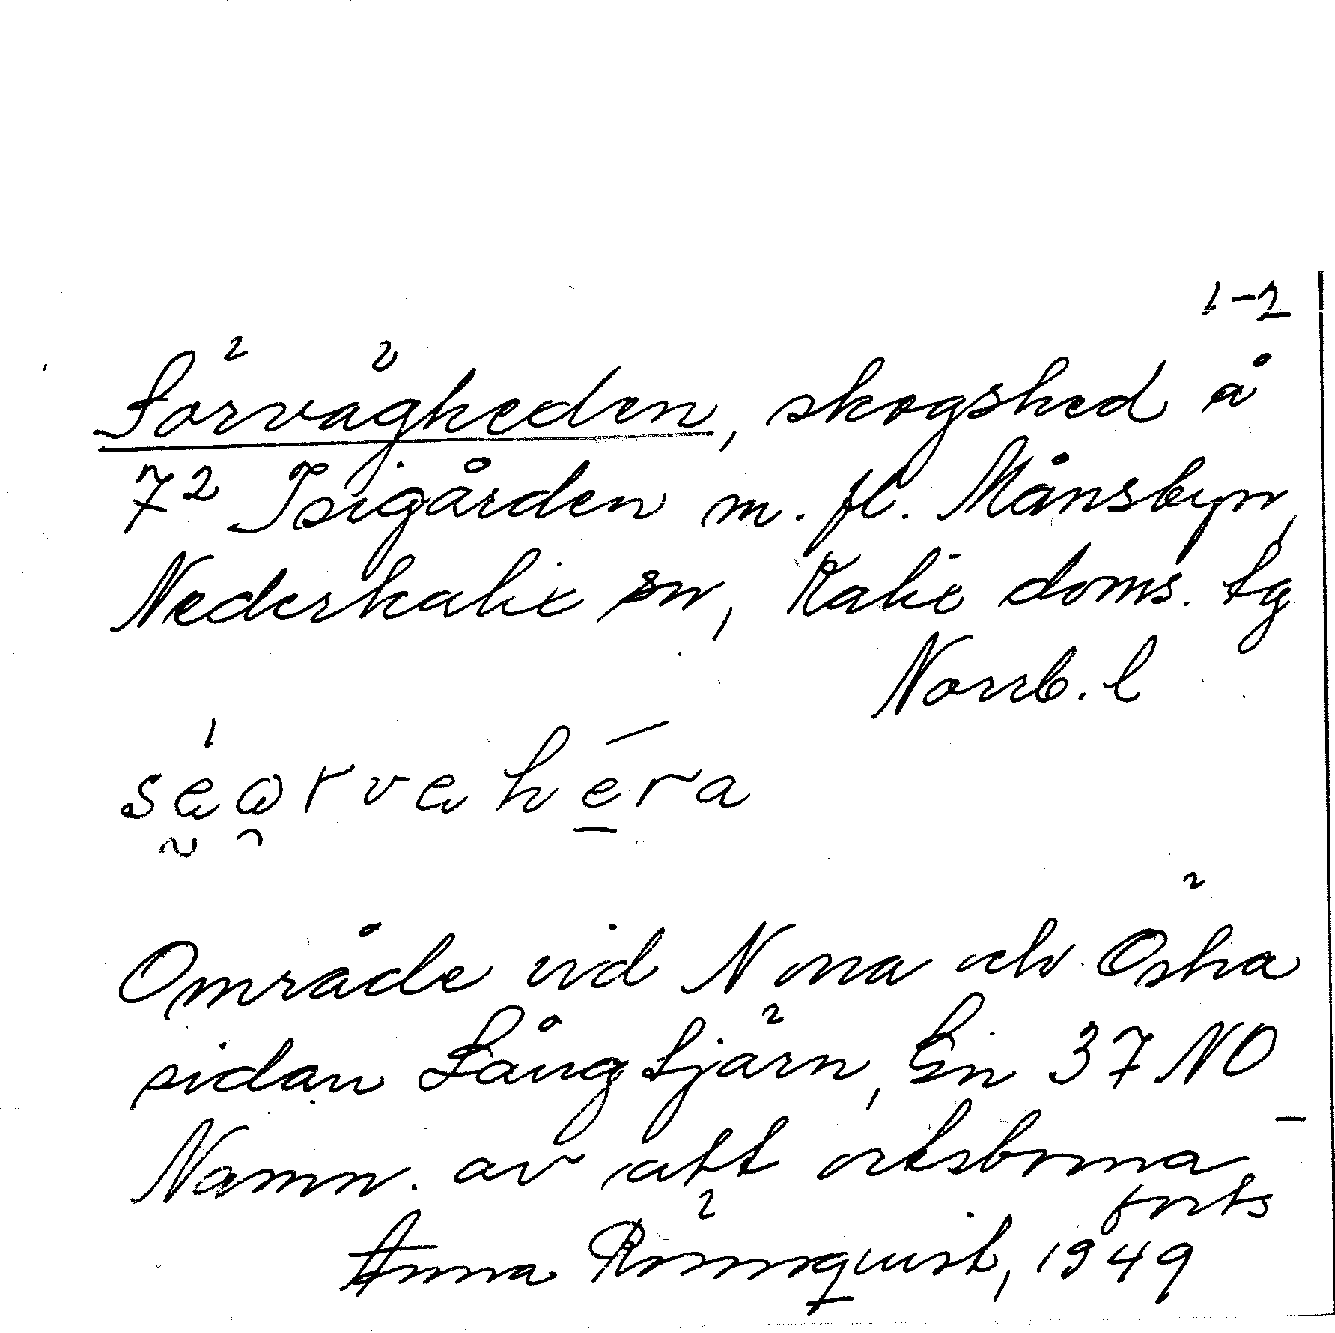 1-2
Sörvägheden, skogshed å
7² Isigården m. fl. Månsbyn,
Nederkalix sn, Kalix doms. tg
Norrb. l
Område vid N och Östra
sidan Långtjärn, En 37 NO
Namn. av att ortsborna
forts
Anna Rönnquist, 1949